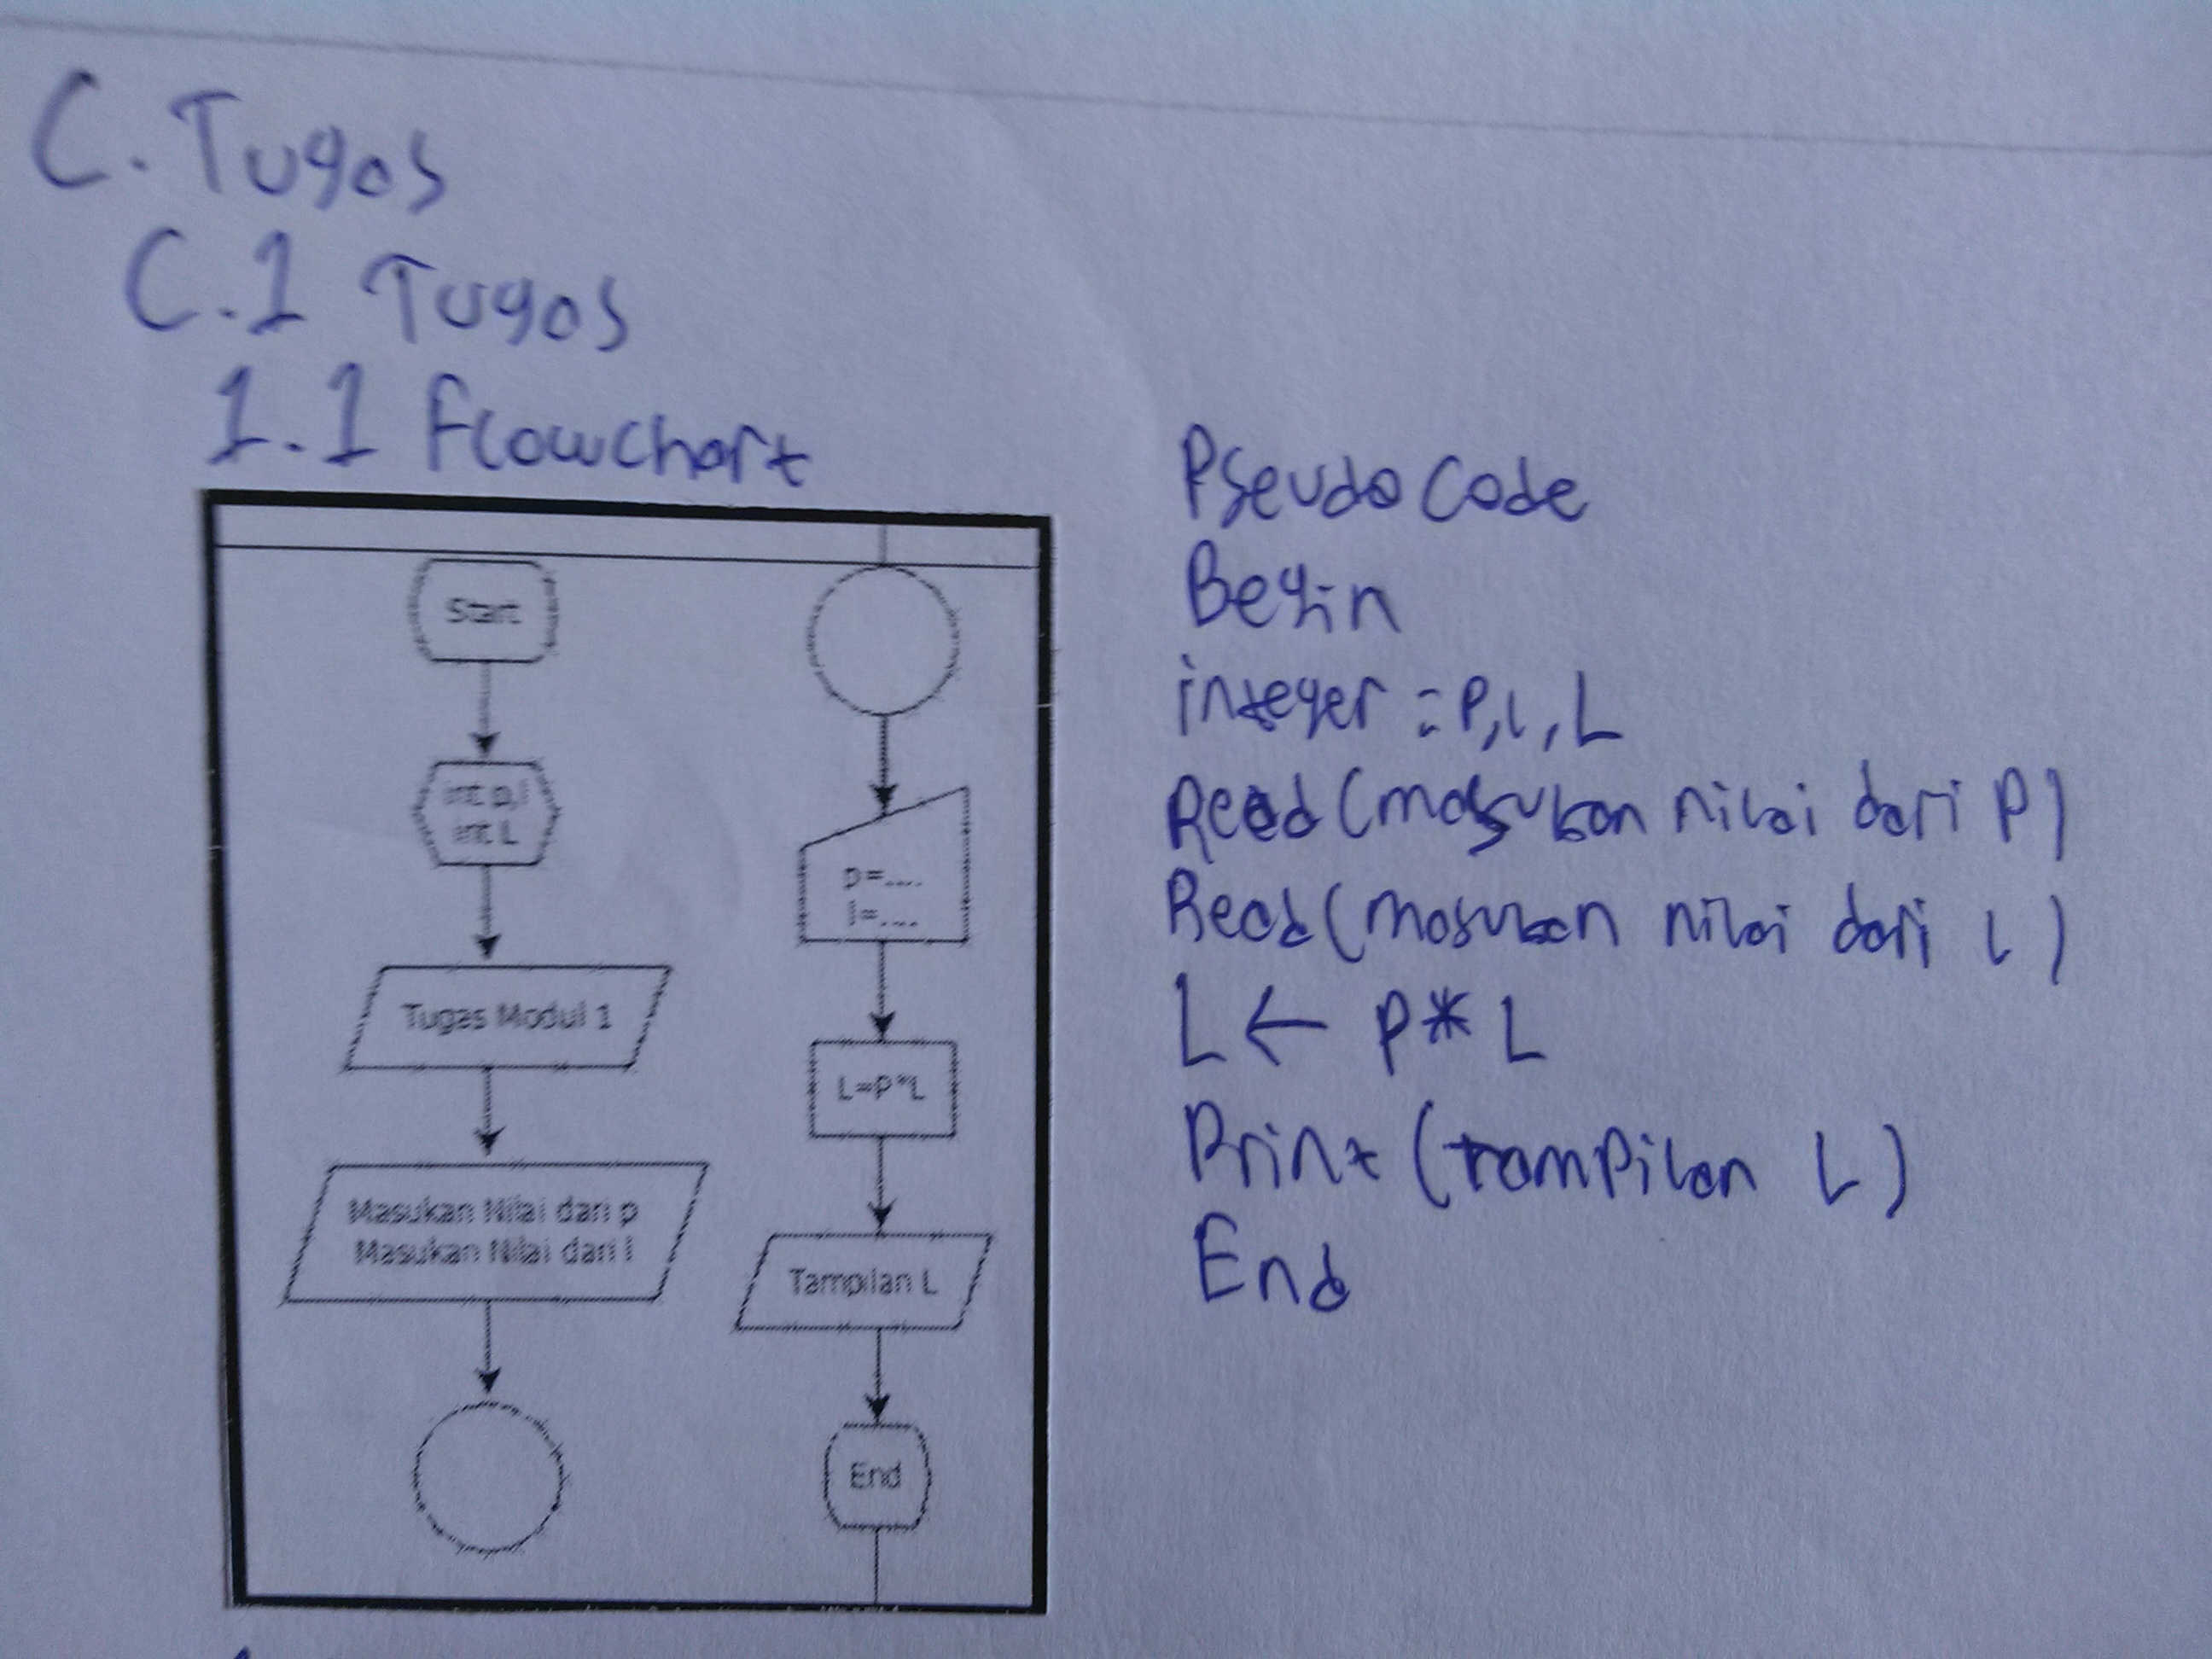 C. Tugas
C.1 Tugas
1.1 Flowchart
Start
int p,l
int L
Tugas Modul 1
Masukan Nilai dari p
Masukan Nilai dari l
p=....
l=....
L=P*L
Tampilan L
End
Pseudo Code
Begin
integer = P, l, L
Read (masukan nilai dari P)
Read (masukan nilai dari l)
L ← P * L
Print (tampilan L)
End